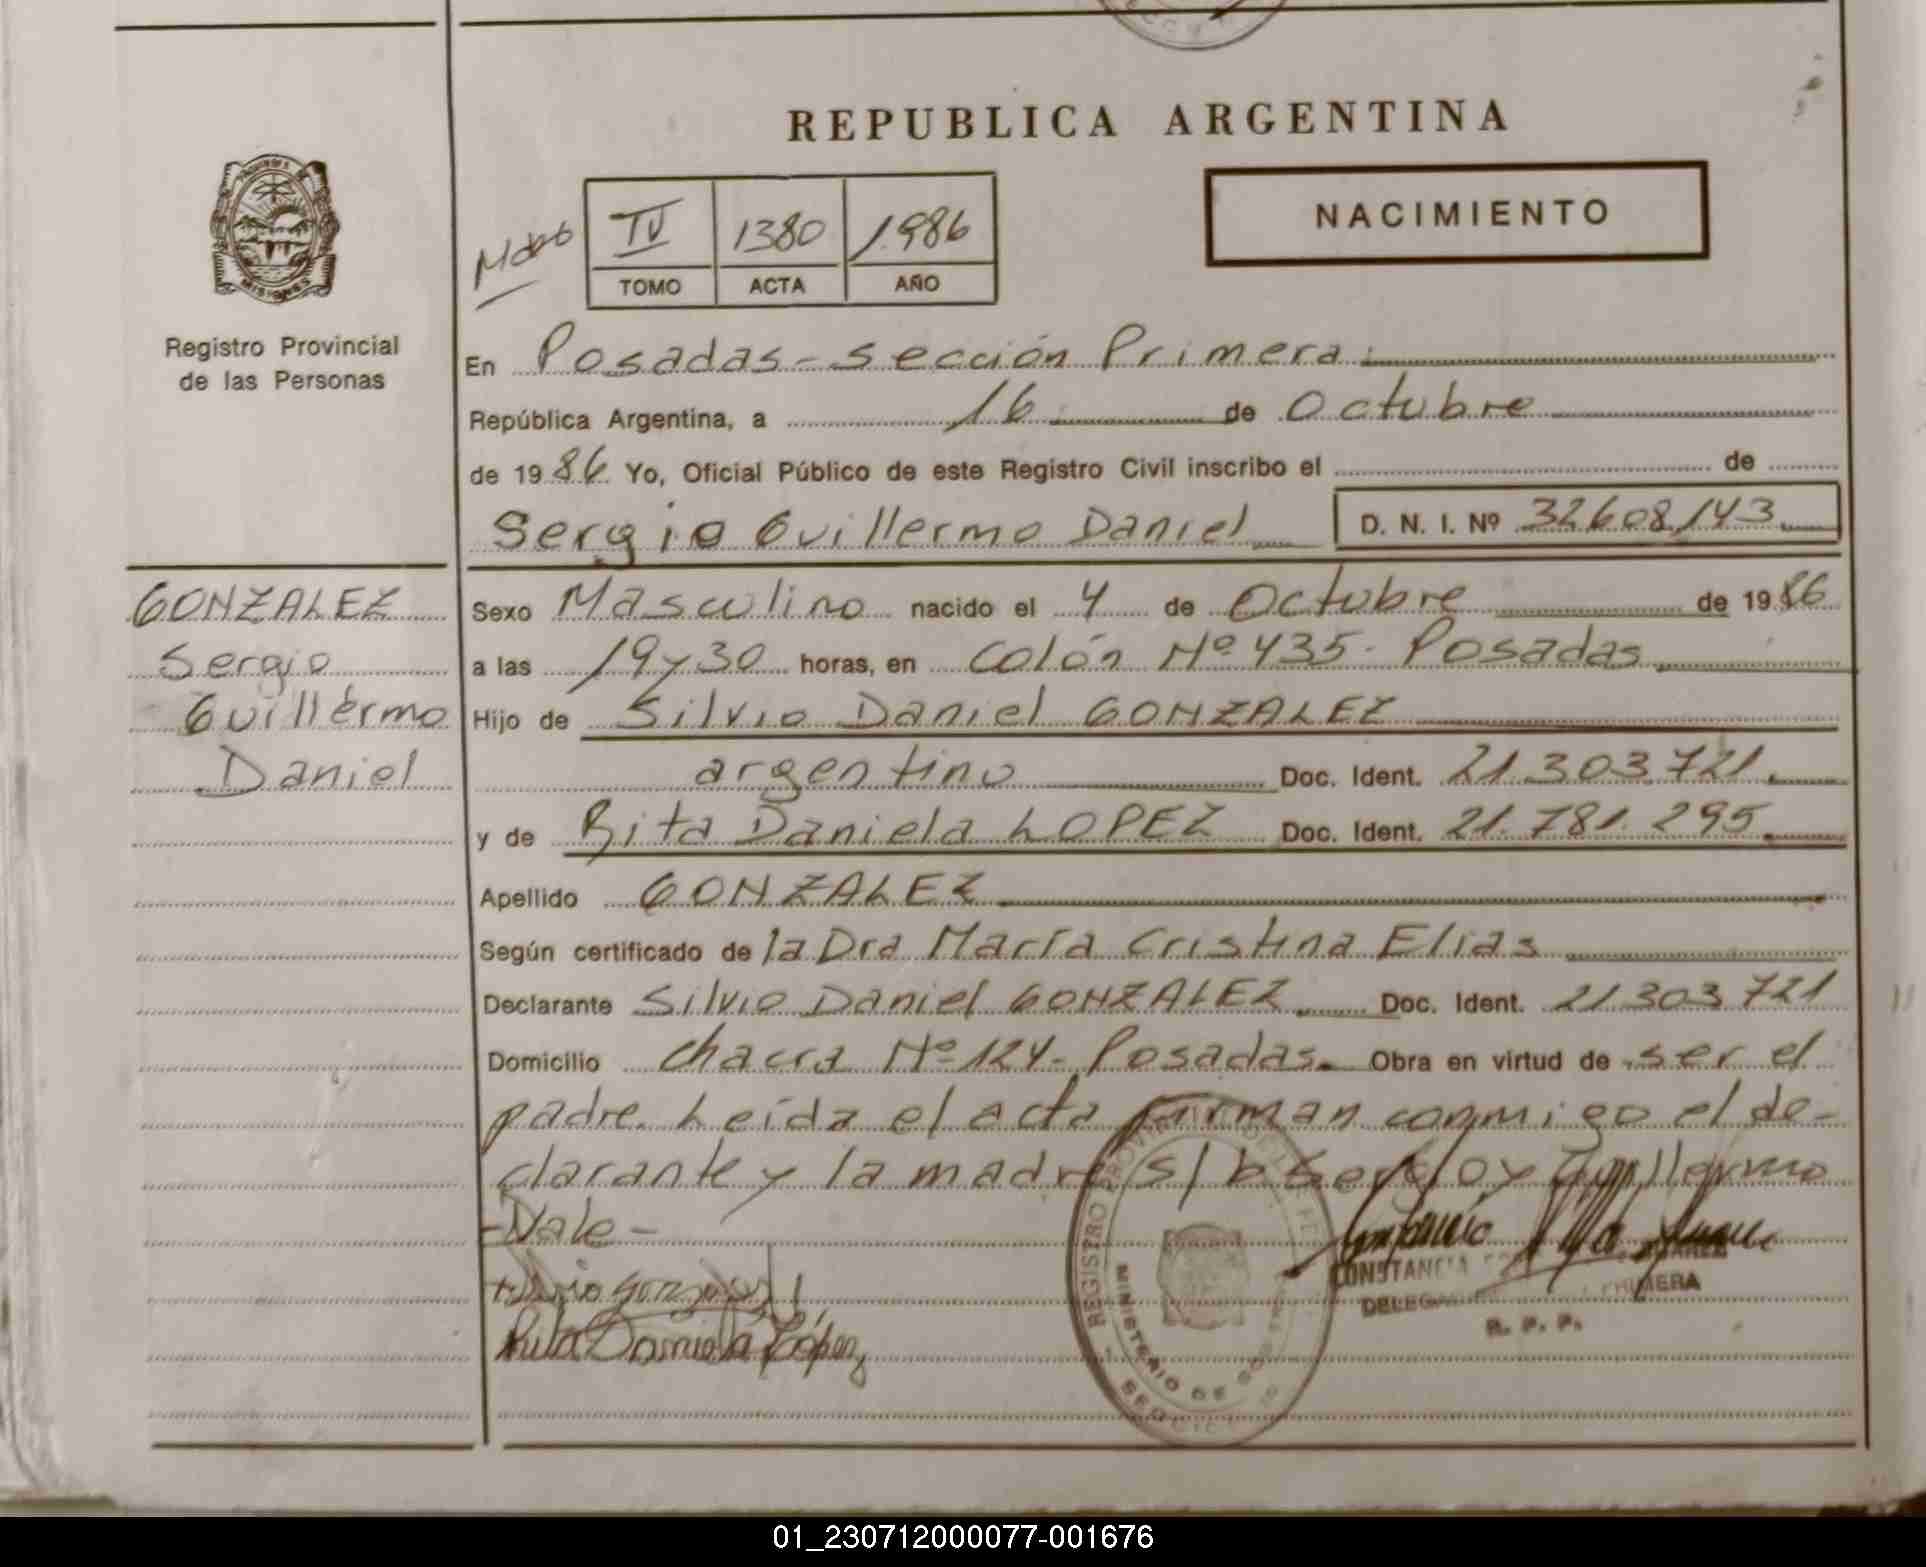 REPUBLICA ARGENTINA
NACIMIENTO
IV 1380 1986
TOMO ACTA AÑO
Registro Provincial
de las Personas
En Posadas - Sección Primera
República Argentina, a 16 de Octubre
de 1986 Yo, Oficial Público de este Registro Civil inscribo el de
Sergio Guillermo Daniel D. N. I. Nº 32608143
GONZALEZ
Sergio
Guillermo
Daniel
Sexo Masculino nacido el 4 de Octubre de 1986
a las 19 y 30 horas, en Colón Nº 435 - Posadas
Hijo de Silvio Daniel GONZALEZ
argentino Doc. Ident. 21.303.721
y de Rita Daniela LOPEZ Doc. Ident. 21.781.295
Apellido GONZALEZ
Según certificado de la Dra María Cristina Elias
Declarante Silvio Daniel GONZALEZ Doc. Ident. 21.303.721
Domicilio Chacra Nº 124 - Posadas. Obra en virtud de ser el
padre. Leída el acta firman conmigo el de-
clarante y la madre s/b Sergio y Guillermo
-Vale-
Rita Daniela López
REGISTRO PROVINCIAL DE LAS PERSONAS
MINISTERIO DE GOBIERNO
CONSTANCIA SUAREZ
PRIMERA
R. P. P.
01_230712000077-001676